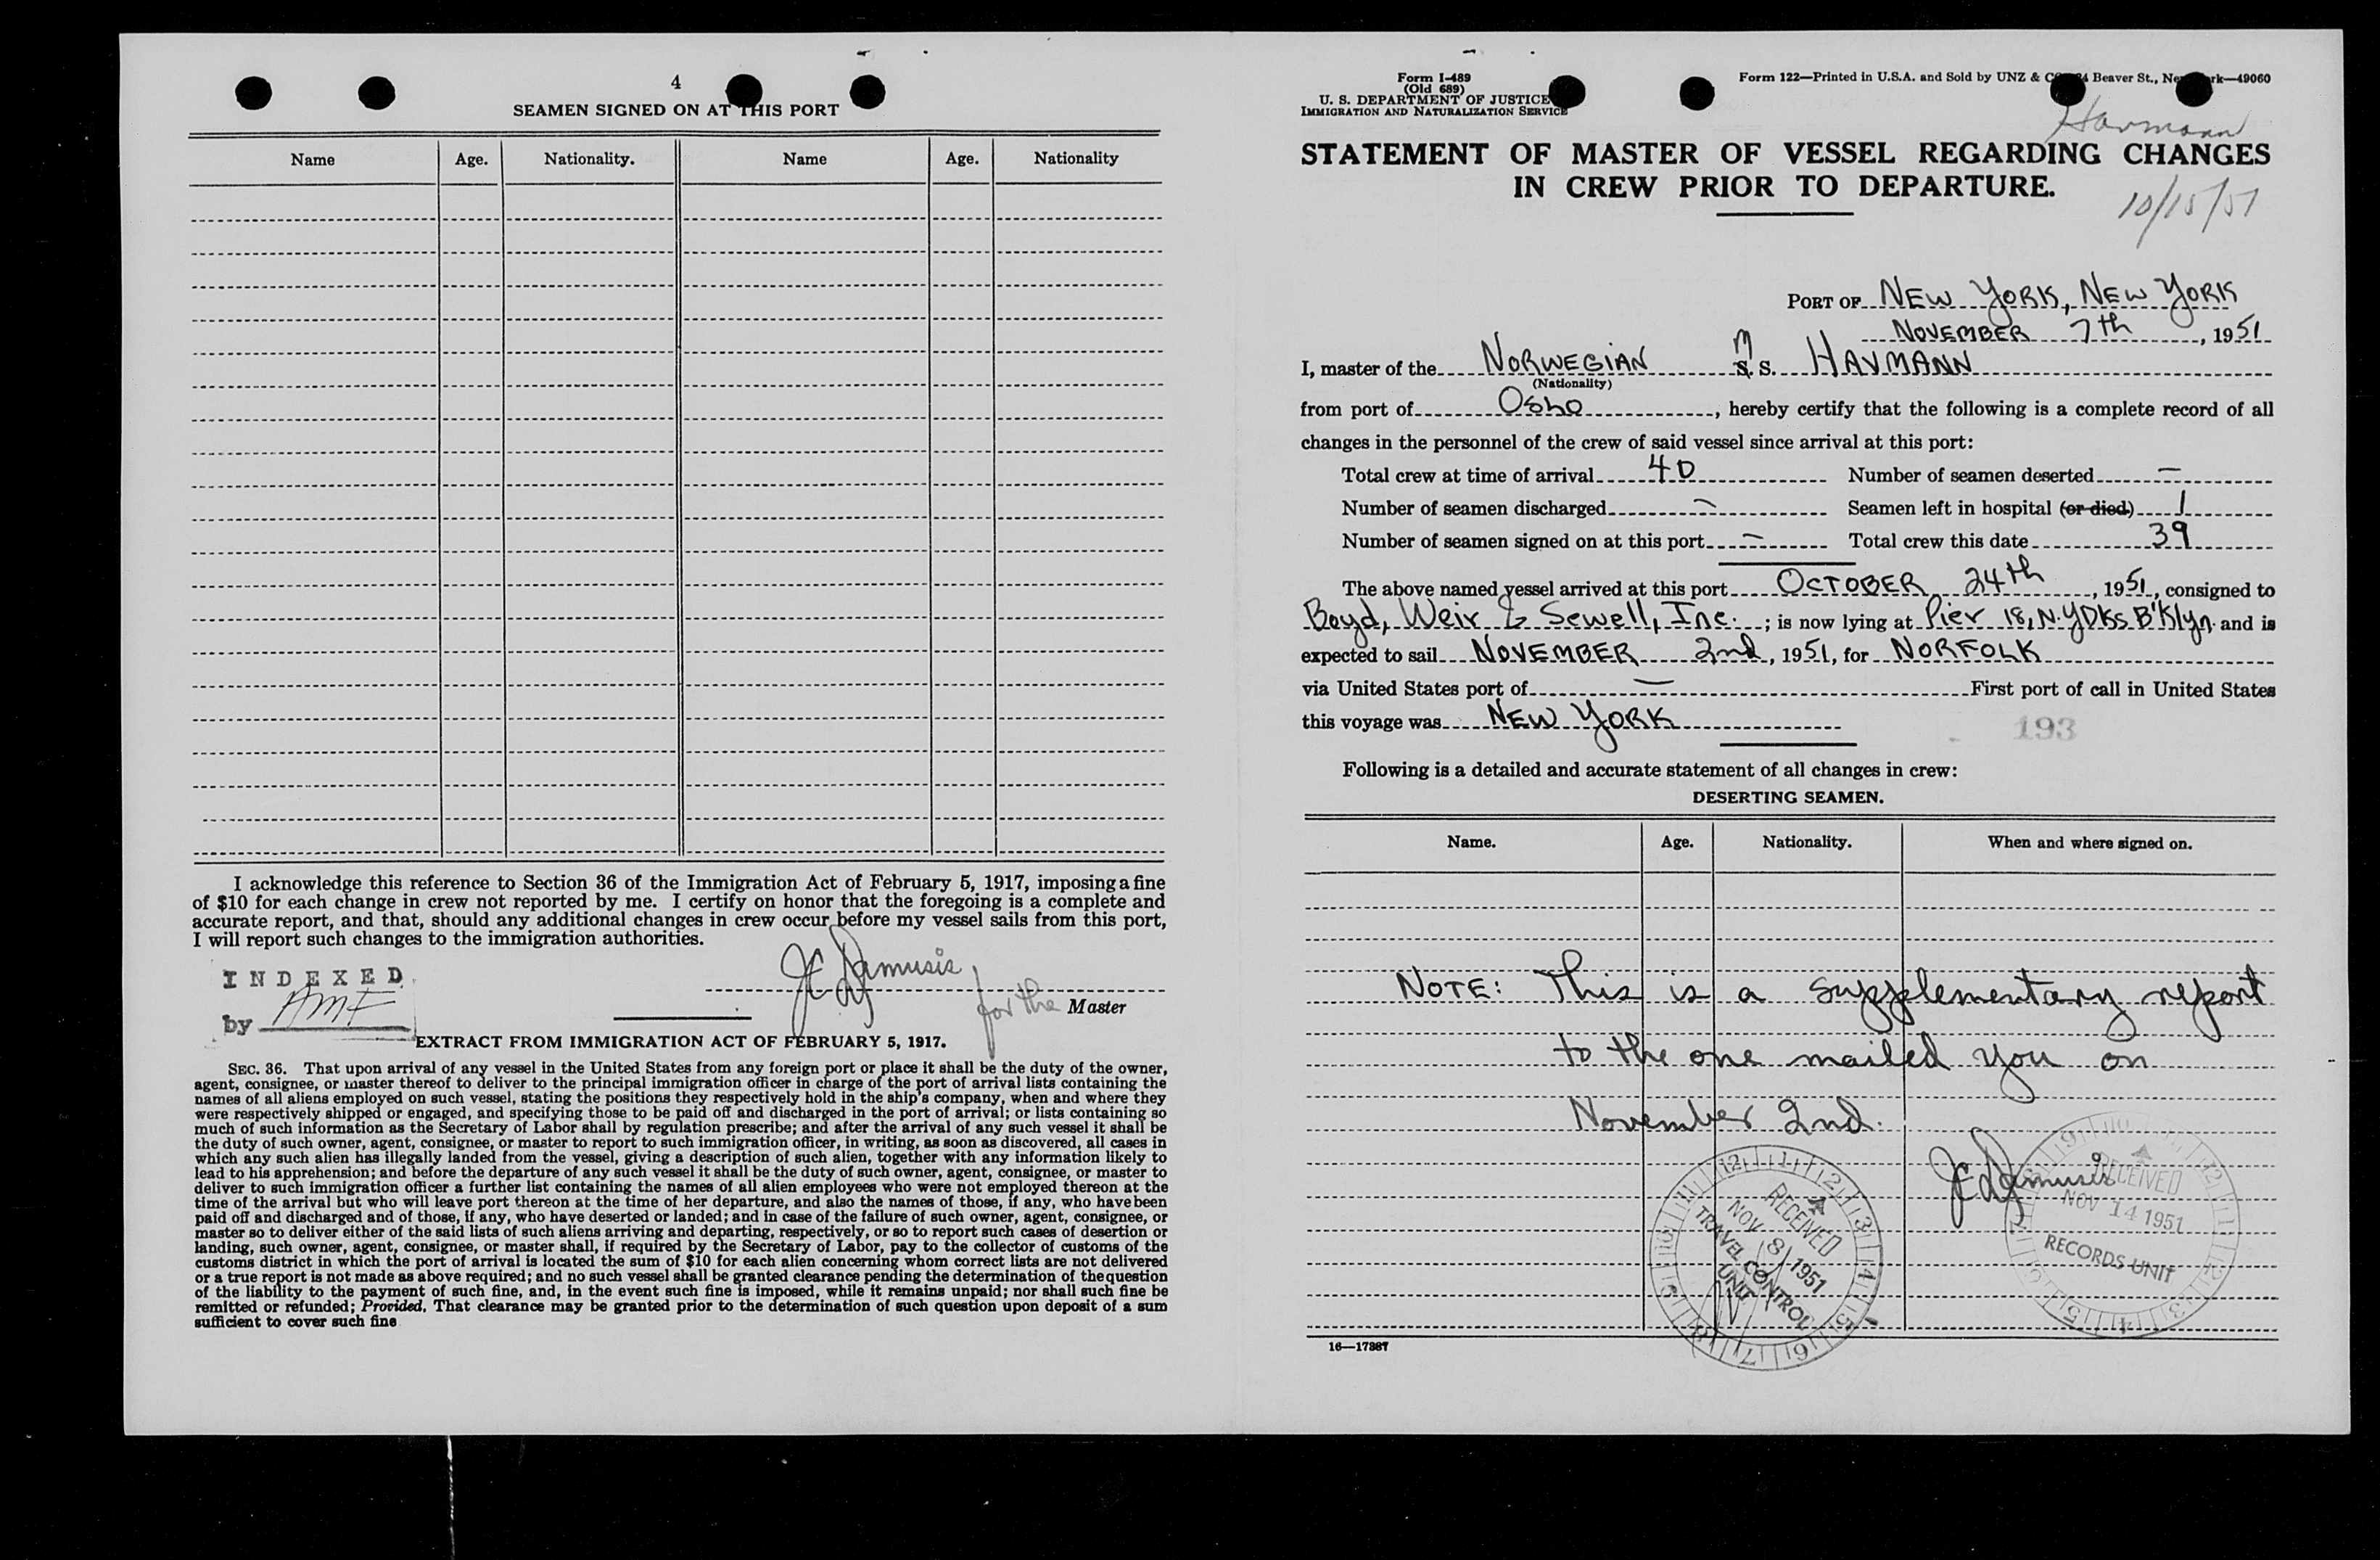 4
SEAMEN SIGNED ON AT THIS PORT
Name Age. Nationality. Name Age. Nationality
I acknowledge this reference to Section 36 of the Immigration Act of February 5, 1917, imposing a fine
of $10 for each change in crew not reported by me. I certify on honor that the foregoing is a complete and
accurate report, and that, should any additional changes in crew occur before my vessel sails from this port,
I will report such changes to the immigration authorities.
INDEXED
by AMF
for the Master
EXTRACT FROM IMMIGRATION ACT OF FEBRUARY 5, 1917.
SEC. 36. That upon arrival of any vessel in the United States from any foreign port or place it shall be the duty of the owner,
agent, consignee, or master thereof to deliver to the principal immigration officer in charge of the port of arrival lists containing the
names of all aliens employed on such vessel, stating the positions they respectively hold in the ship's company, when and where they
were respectively shipped or engaged, and specifying those to be paid off and discharged in the port of arrival; or lists containing so
much of such information as the Secretary of Labor shall by regulation prescribe; and after the arrival of any such vessel it shall be
the duty of such owner, agent, consignee, or master to report to such immigration officer, in writing, as soon as discovered, all cases in
which any such alien has illegally landed from the vessel, giving a description of such alien, together with any information likely to
lead to his apprehension; and before the departure of any such vessel it shall be the duty of such owner, agent, consignee, or master to
deliver to such immigration officer a further list containing the names of all alien employees who were not employed thereon at the
time of the arrival but who will leave port thereon at the time of her departure, and also the names of those, if any, who have been
paid off and discharged and of those, if any, who have deserted or landed; and in case of the failure of such owner, agent, consignee, or
master so to deliver either of the said lists of such aliens arriving and departing, respectively, or so to report such cases of desertion or
landing, such owner, agent, consignee, or master shall, if required by the Secretary of Labor, pay to the collector of customs of the
customs district in which the port of arrival is located the sum of $10 for each alien concerning whom correct lists are not delivered
or a true report is not made as above required; and no such vessel shall be granted clearance pending the determination of the question
of the liability to the payment of such fine, and, in the event such fine is imposed, while it remains unpaid; nor shall such fine be
remitted or refunded; Provided, That clearance may be granted prior to the determination of such question upon deposit of a sum
sufficient to cover such fine
Form I-489
(Old 689)
U. S. DEPARTMENT OF JUSTICE
IMMIGRATION AND NATURALIZATION SERVICE
Form 122—Printed in U.S.A. and Sold by UNZ & Beaver St., 49060
Havmann
STATEMENT OF MASTER OF VESSEL REGARDING CHANGES
IN CREW PRIOR TO DEPARTURE.
10/15/51
PORT OF NEW YORK, NEW YORK
NOVEMBER 7th, 1951
I, master of the NORWEGIAN M S. HAVMANN
(Nationality)
from port of OSLO, hereby certify that the following is a complete record of all
changes in the personnel of the crew of said vessel since arrival at this port:
Total crew at time of arrival 40 Number of seamen deserted —
Number of seamen discharged — Seamen left in hospital (or died) 1
Number of seamen signed on at this port — Total crew this date 39
The above named vessel arrived at this port OCTOBER 24th, 1951, consigned to
Boyd, Weir & Sewell, Inc.; is now lying at Pier 18, N.Y Dks B'klyn and is
expected to sail NOVEMBER 2nd, 1951, for NORFOLK
via United States port of — First port of call in United States
this voyage was NEW YORK
193
Following is a detailed and accurate statement of all changes in crew:
DESERTING SEAMEN.
Name. Age. Nationality. When and where signed on.
NOTE: This is a supplementary report
to the one mailed you on
November 2nd.
RECEIVED
NOV 8 1951
TRAVEL CONTROL
UNIT
RECEIVED
NOV 14 1951
RECORDS UNIT
16—17387